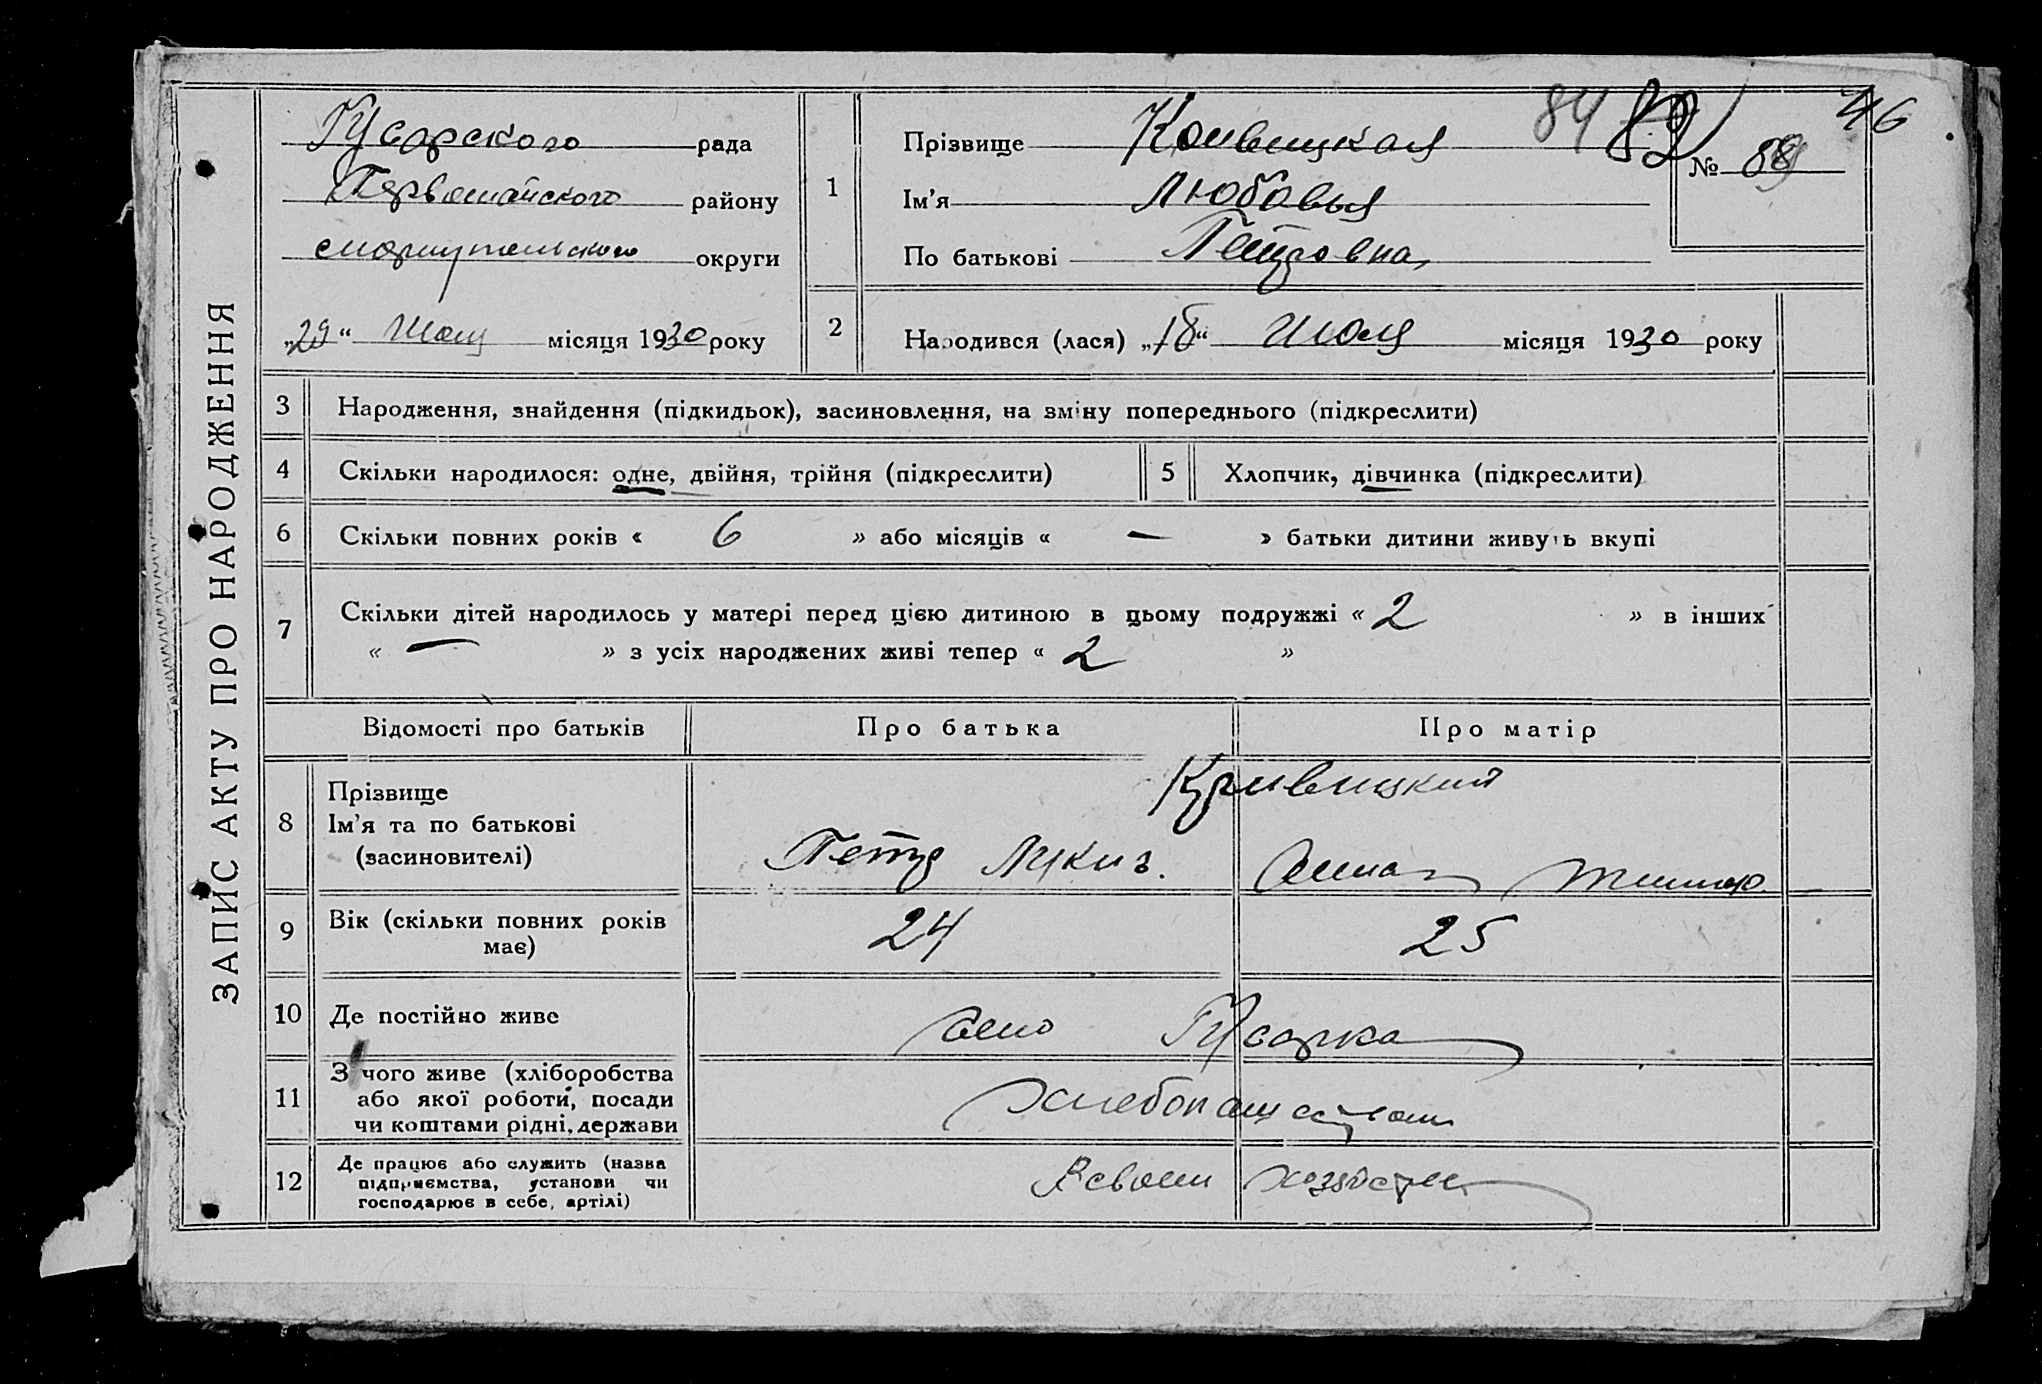 ЗАПИС АКТУ ПРО НАРОДЖЕННЯ
Гусарского рада
Первомайского району
Мариупольского округи
„29“ Июля місяця 1930 року
84 82 46
№ 88
1 Прізвище Кривицкая
Ім'я Любовья
По батькові Петровна
2 Народився (лася) „18“ Июля місяця 1930 року
3 Народження, знайдення (підкидьок), засиновлення, на зміну попереднього (підкреслити)
4 Скільки народилося: одне, двійня, трійня (підкреслити)
5 Хлопчик, дівчинка (підкреслити)
6 Скільки повних років « 6 » або місяців « — » батьки дитини живуть вкупі
7 Скільки дітей народилось у матері перед цією дитиною в цьому подружжі « 2 » в інших
« — » з усіх народжених живі тепер « 2 »
Відомості про батьків Про батька Про матір
8 Прізвище Кривицкий
Ім'я та по батькові
(засиновителі) Петр Лукич. Анна
9 Вік (скільки повних років
має) 24 25
10 Де постійно живе село Гусарка
11 З чого живе (хліборобства
або якої роботи, посади
чи коштами рідні, держави Хлебопашеством
12 Де працює або служить (назва
підприємства, установи чи
господарює в себе, артілі) В своем хозяйстве